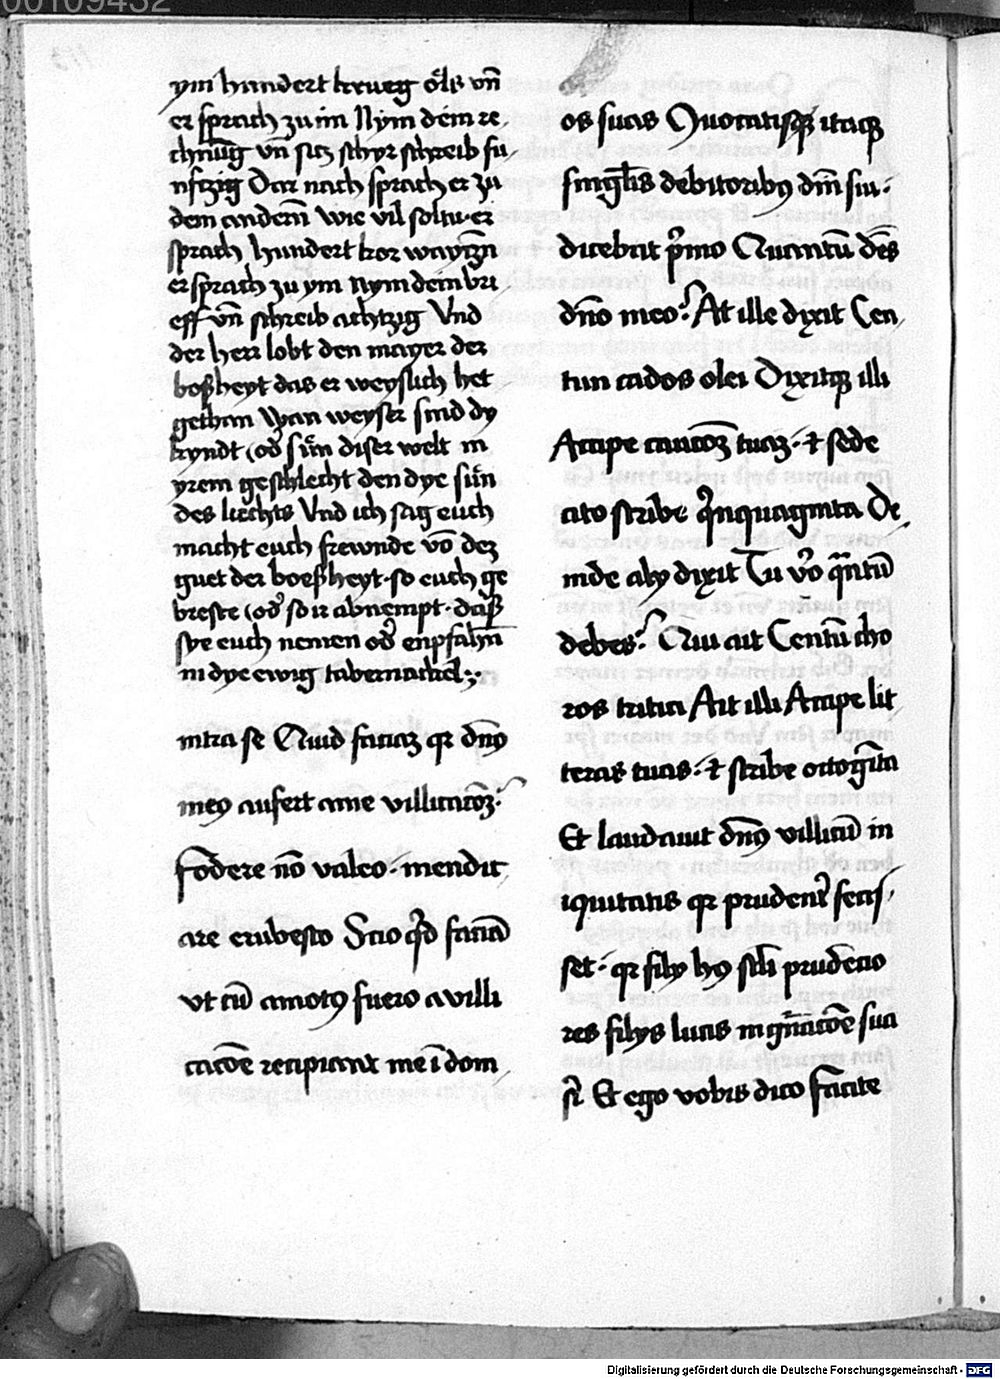 00109432
ym hundert krueg öls vn̄
er sprach zu im Nym dein re
chnūg vn̄ sitz schyr schreib fu
nfzig Dar nach sprach er zu
dem andern̄ Wie vil soltu er
sprach hundert kor waytzn̄
er sprach zu ym nym dein bri
eff vn̄ schreib achtzig Vnd
der herr lobt den mayer der
boßheyt das er weyslich het
gethan Wan weyser sind dy
kyndt (od sün diser welt in
yrem geschlecht den dye sün
des liechts Vnd ich sag euch
macht euch frewnde vō dez
guet der boeßheyt so euch ge
breste (od so ir abnempt daß
sye euch nemen od enpfahn̄
in dye ewig tabernackel
intra se Quid faciaz qr dn̄s
meꝯ aufert a me villicacōz
fodere nō valeo mendic
are erubesco Scio qd faciā
vt cū amotꝯ fuero a villi
cacōe recipiant me ī dom
os suas Conuocatisqꝫ itaqꝫ
singl̄is debitoribꝯ dn̄i sui
dicebat pmo Quantū debes
dn̄o meo At ille dixit Cen
tum cados olei Dixitqꝫ illi
Accipe caucōz tuaz ⁊ sede
cito scribe qnquaginta De
inde alij dixit Tu vo qantū
debes Qui ait Centū cho
ros tritici Ait illi Accipe lit
teras tuas ⁊ scribe octogīta
Et laudauit dn̄s villicū in
iquitatis qr prudent fecis
set qr filij hꝯ scli prudēcio
res filijs lucis in gn̄acōe sua
st Et ego vobis dico facite
Digitalisierung gefördert durch die Deutsche Forschungsgemeinschaft - DFG